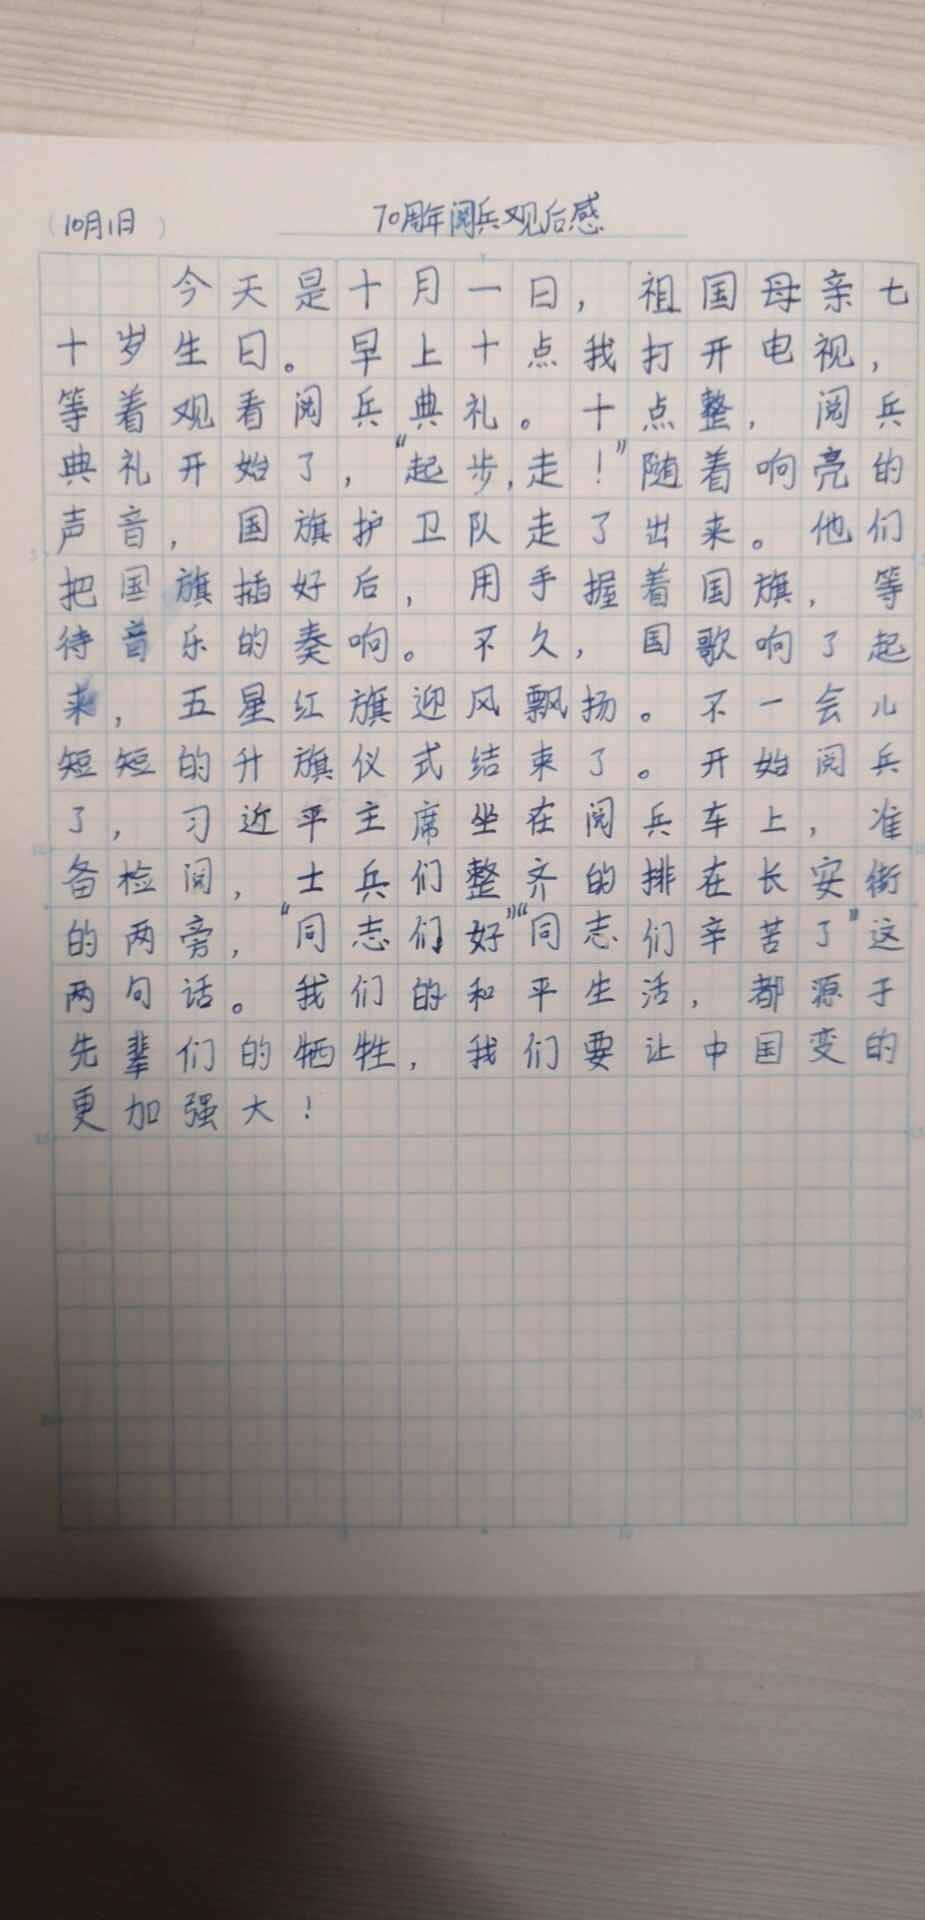 (10月1日) 70周年阅兵观后感
今天是十月一日，祖国母亲七
十岁生日。早上十点我打开电视，
等着观看阅兵典礼。十点整，阅兵
典礼开始了，“起步,走！”随着响亮的
声音，国旗护卫队走了出来。他们
把国旗插好后，用手握着国旗，等
待音乐的奏响。不久，国歌响了起
来，五星红旗迎风飘扬。不一会儿
短短的升旗仪式结束了。开始阅兵
了，习近平主席坐在阅兵车上，准
备检阅，士兵们整齐的排在长安街
的两旁，“同志们好”“同志们辛苦了”这
两句话。我们的和平生活，都源于
先辈们的牺牲，我们要让中国变的
更加强大！